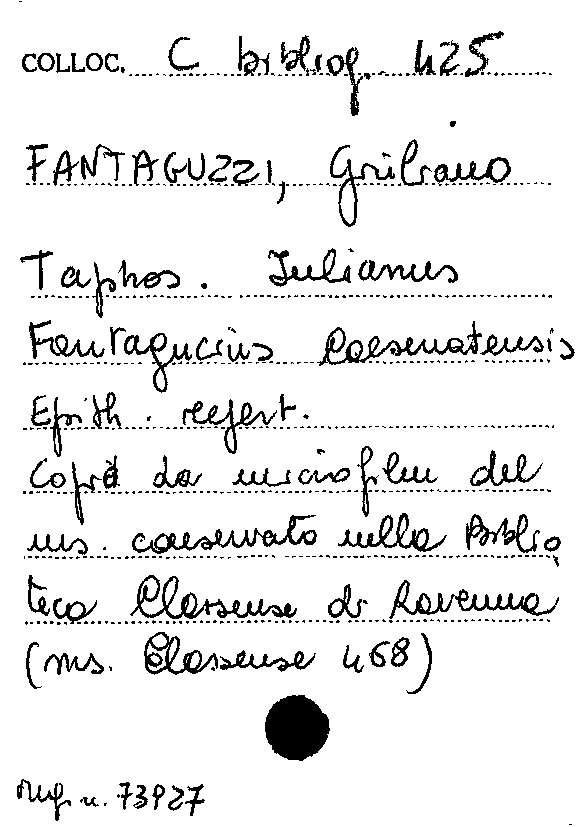 COLLOC. C bibliog. 425
FANTAGUZZI, Giuliano
Taphos. Iulianus
Fantagucius Caesenatensis
Epith. refert.
Copia da microfilm del
ms. conservato nella Biblio
teca Classense di Ravenna
(ms. Classense 468)
n. 73927